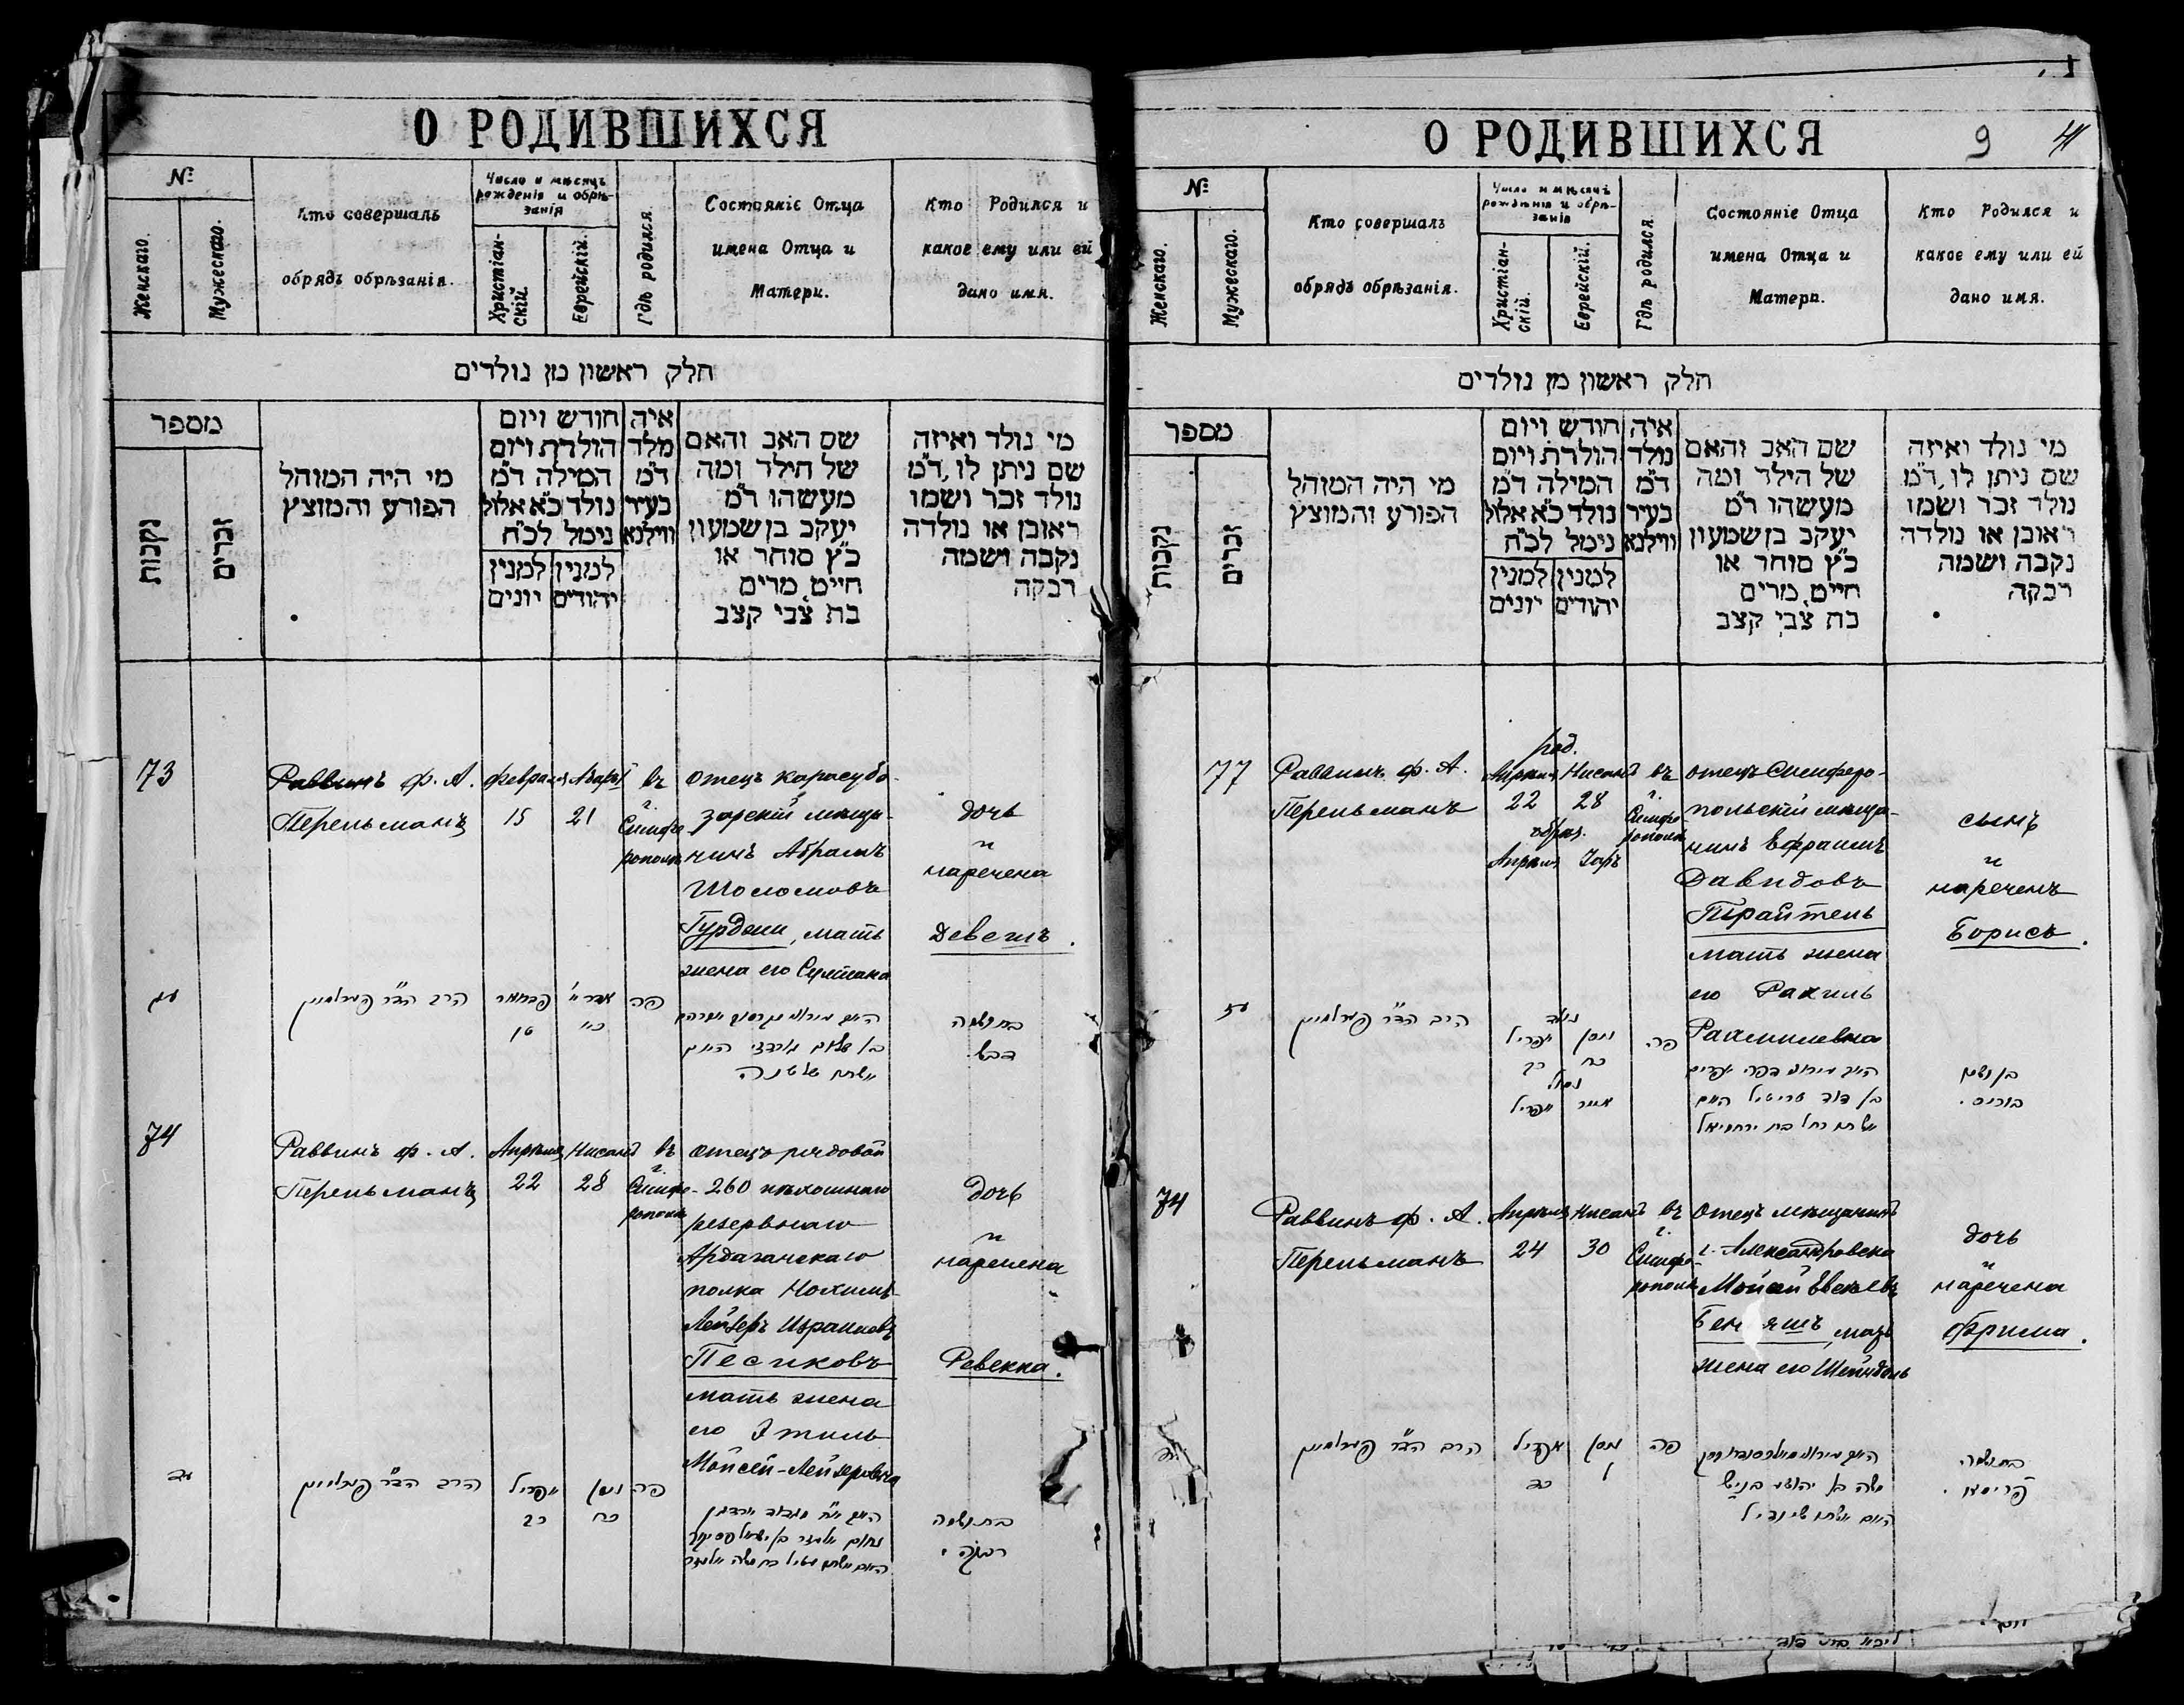 О РОДИВШИХСЯ
№
Женскаго.
Мужескаго.
Кто совершалъ
обрядъ обрѣзанія.
Число и мѣсяцъ
рожденія и обрѣ-
занія
Христіан-
скій.
Еврейскій.
Гдѣ родился.
Состояніе Отца
имена Отца и
Матери.
Кто Родился и
какое ему или ей
дано имя.
חלק ראשון מן נולדים
מספר
נקבות
זכרים
מי היה המוהל
הפורע והמוצץ
חודש ויום
הולדת ויום
המילה ד״מ
נולד כ״א אלול
נימל לכ״ח
למנין למנין
יהודים יונים
איה
מלד
ד״מ
בעיר
ווילנא
שם האב והאם
של הילד ומה
מעשהו ד״מ
יעקב בן שמעון
כ״ץ סוחר או
חייט, מרים
בת צבי קצב
מי נולד ואיזה
שם ניתן לו, ד״מ
נולד זכר ושמו
ראובן או נולדה
נקבה ושמה
רבקה
73
Раввинъ ф. А.
Перельманъ
февраля
15
Адаръ I
21
въ
г.
Симфе-
рополѣ
отецъ карасуба-
зарскій мѣща-
нинъ Абрамъ
Шоломовъ
Гурджи, мать
жена его Султана
дочь
и
наречена
Девешъ.
הרב הד״ר פערלמאן
פה
בת ושמה
דבש.
74
Раввинъ ф. А.
Перельманъ
Апрѣля
22
Нисанъ
28
въ
г.
Симфе-
рополѣ
отецъ рядовой
260 пѣхотнаго
резервнаго
Ардаганскаго
полка Нохимъ-
Лейзеръ Израилевъ
Песиковъ
мать жена
его Этиль
Мойсей-Лейзеровна
дочь
и
наречена
Ревекка.
הרב הד״ר פערלמאן
אפריל
כב
ניסן
כח
פה
בת ושמה
רבקה.
О РОДИВШИХСЯ
9
41
№
Женскаго.
Мужескаго.
Кто совершалъ
обрядъ обрѣзанія.
Число и мѣсяцъ
рожденія и обрѣ-
занія
Христіан-
скій.
Еврейскій.
Гдѣ родился.
Состояніе Отца
имена Отца и
Матери.
Кто Родился и
какое ему или ей
дано имя.
חלק ראשון מן נולדים
מספר
נקבות
זכרים
מי היה המוהל
הפורע והמוצץ
חודש ויום
הולדת ויום
המילה ד״מ
נולד כ״א אלול
נימל לכ״ח
למנין למנין
יהודים יונים
איה
נולד
ד״מ
בעיר
ווילנא
שם האב והאם
של הילד ומה
מעשהו ד״מ
יעקב בן שמעון
כ״ץ סוחר או
חייט, מרים
בת צבי קצב
מי נולד ואיזה
שם ניתן לו, ד״מ
נולד זכר ושמו
ראובן או נולדה
נקבה ושמה
רבקה
77
Раввинъ ф. А.
Перельманъ
род.
Апрѣля Нисанъ
22 28
обрѣз.
Апрѣля Іаръ
въ
г.
Симфе-
рополѣ
отецъ Симферо-
польскій мѣща-
нинъ Ефраимъ
Давидовъ
Трайтель
мать жена
его Рахиль
Рахмилевна
сынъ
и
нареченъ
Борисъ.
הרב הד״ר פערלמאן
נולד
אפריל ניסן
כב כח
נימול
אפריל אייר
פה.
בן דוד טרייטיל היום
אשתו רחל בת ירחמיאל
בן ושמו
בוריס.
74
Раввинъ ф. А.
Перельманъ
Апрѣля
24
Нисанъ
30
въ
г.
Симфе-
рополѣ
отецъ мѣщанинъ
г. Александровска
Мойсей Евсѣевъ
Беняшъ, мать
жена его Шейндель
дочь
и
наречена
Фрима.
הרב הד״ר פערלמאן
אפריל
כד
ניסן
ל
פה
משה בן יהושע בניש
היום אשתו שינדיל
בת ושמה
פרימא.